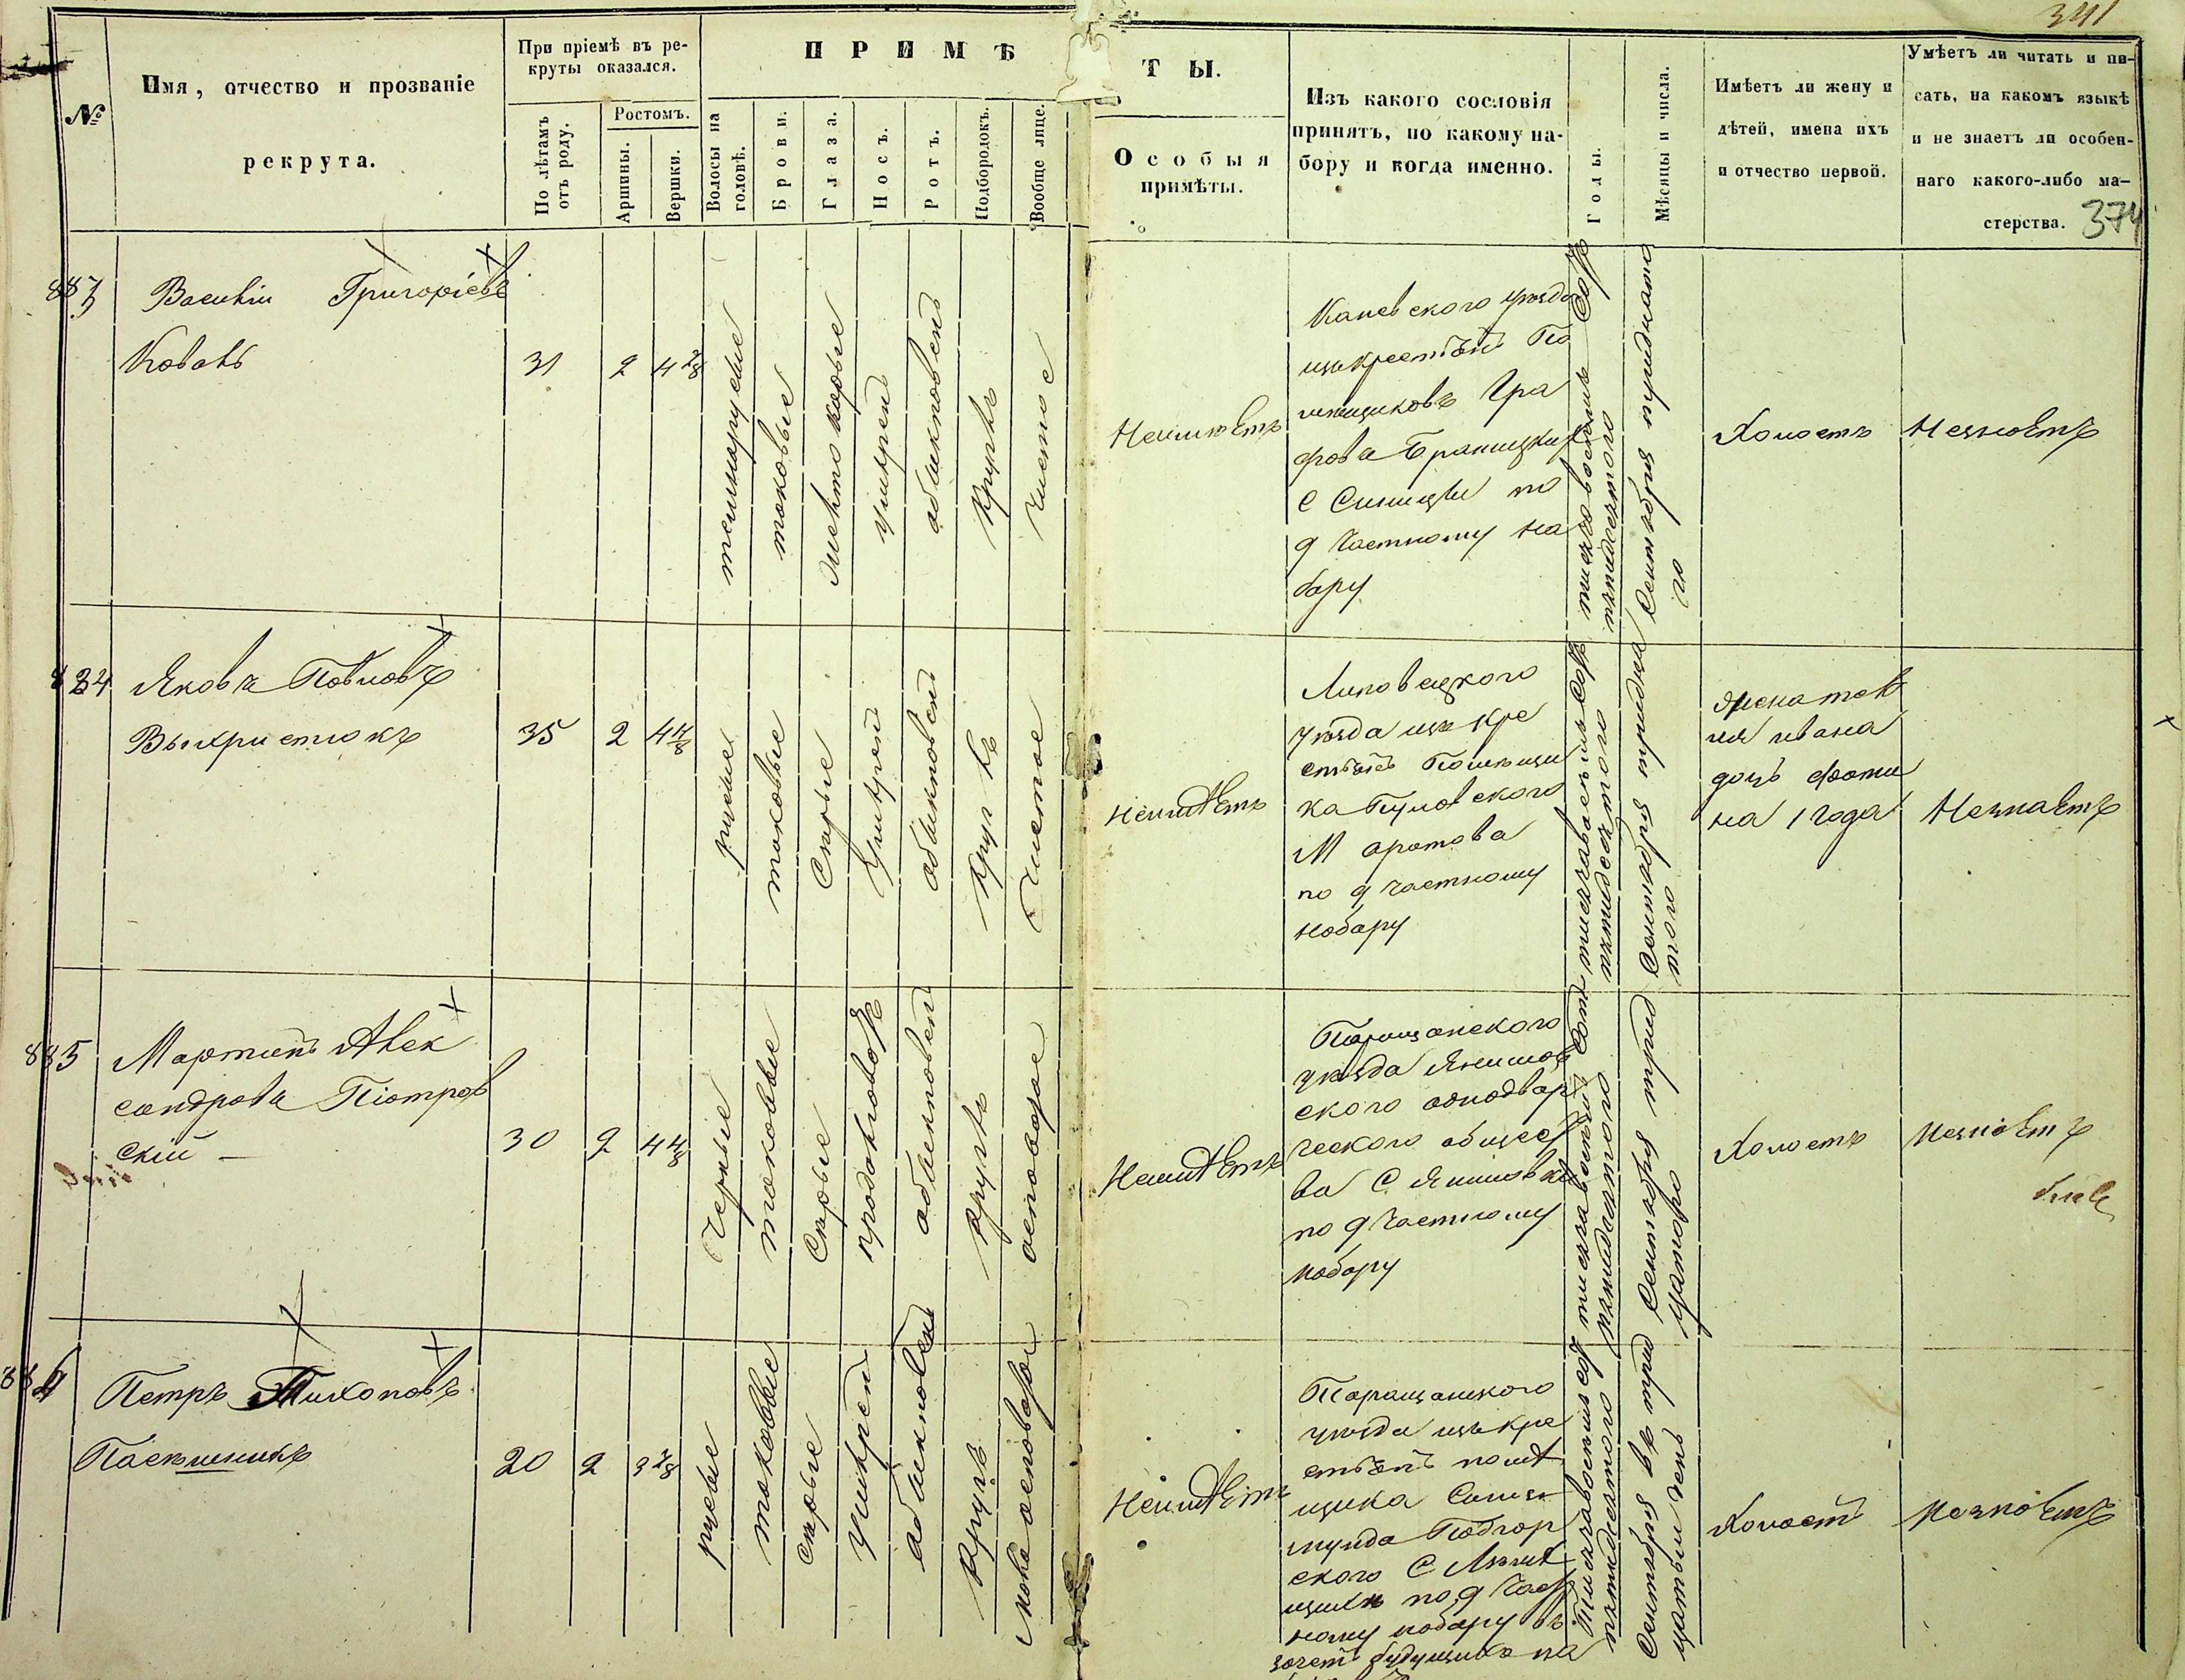 341
374
№
Имя, отчество и прозваніе
рекрута.
При пріемѣ въ ре-
круты оказался.
По лѣтамъ
отъ роду.
Ростомъ.
Аршины.
Вершки.
ПРИМѢ
ТЫ.
Волосы на
головѣ.
Брови.
Глаза.
Носъ.
Ротъ.
Подбородокъ.
Вообще лице.
Особыя
примѣты.
Изъ какого сословія
принятъ, по какому на-
бору и когда именно.
Годы.
Мѣсяцы и числа.
Имѣетъ ли жену и
дѣтей, имена ихъ
и отчество первой.
Умѣетъ ли читать и пи-
сать, на какомъ языкѣ
и не знаетъ ли особен-
наго какого-либо ма-
стерства.
883
Василій Григорьевъ
Коваль
31
2
4 2/8
темнорусые
таковые
умѣрен
обыкновен
кругл
чистое
Неимѣетъ
Каневского уѣзда
изъ крестьян По
мещиковъ Гра
фова Браницких
с Синицы по
9 частному на
бору
тысяча восемь сот
пятидесятого
Сентября тридцато
го
Холостъ
Незнаетъ
884
Яковъ Павловъ
Выхристюкъ
35
2
4 4/8
русые
таковые
Серые
Умѣрен
обыкновен
кругл
Чистое
Неимѣетъ
Липовецкого
уѣзда изъ кре
стьян Помѣщи
ка
по 9 частному
набору
тысяча восемь сот
пятидесятого
Сентября тридца
того
женат
ивана
дочь
на 1 года
Незнаетъ
885
Мартинъ Алек
сандровъ Піотров
скій
30
2
4 4/8
Черные
таковые
Серые
продолговат
обыкновен
кругл
осповатое
Неимѣетъ
Таращанского
уѣзда Янишов
ского однодвор
ческого общест
ва С Янишовки
по 9 частному
набору
тысяча восемь сот
пятидесятого
Сентября трид
цатого
Холостъ
Незнаетъ
886
Петръ Тихоновъ
Пасѣшникъ
20
2
3 2/8
русые
таковые
серые
Умѣрен
обыкновен
кругл
осповатое
Неимѣетъ
Таращанского
уѣзда изъ кре
стьян помѣ
щика Сигиз
мунда Подгор
ского С
по 9 част
ному набору въ
зачет будущихъ на
Тысяча восемь сот
пятидесятого
Сентября въ трид
цатый день
Холостъ
Незнаетъ